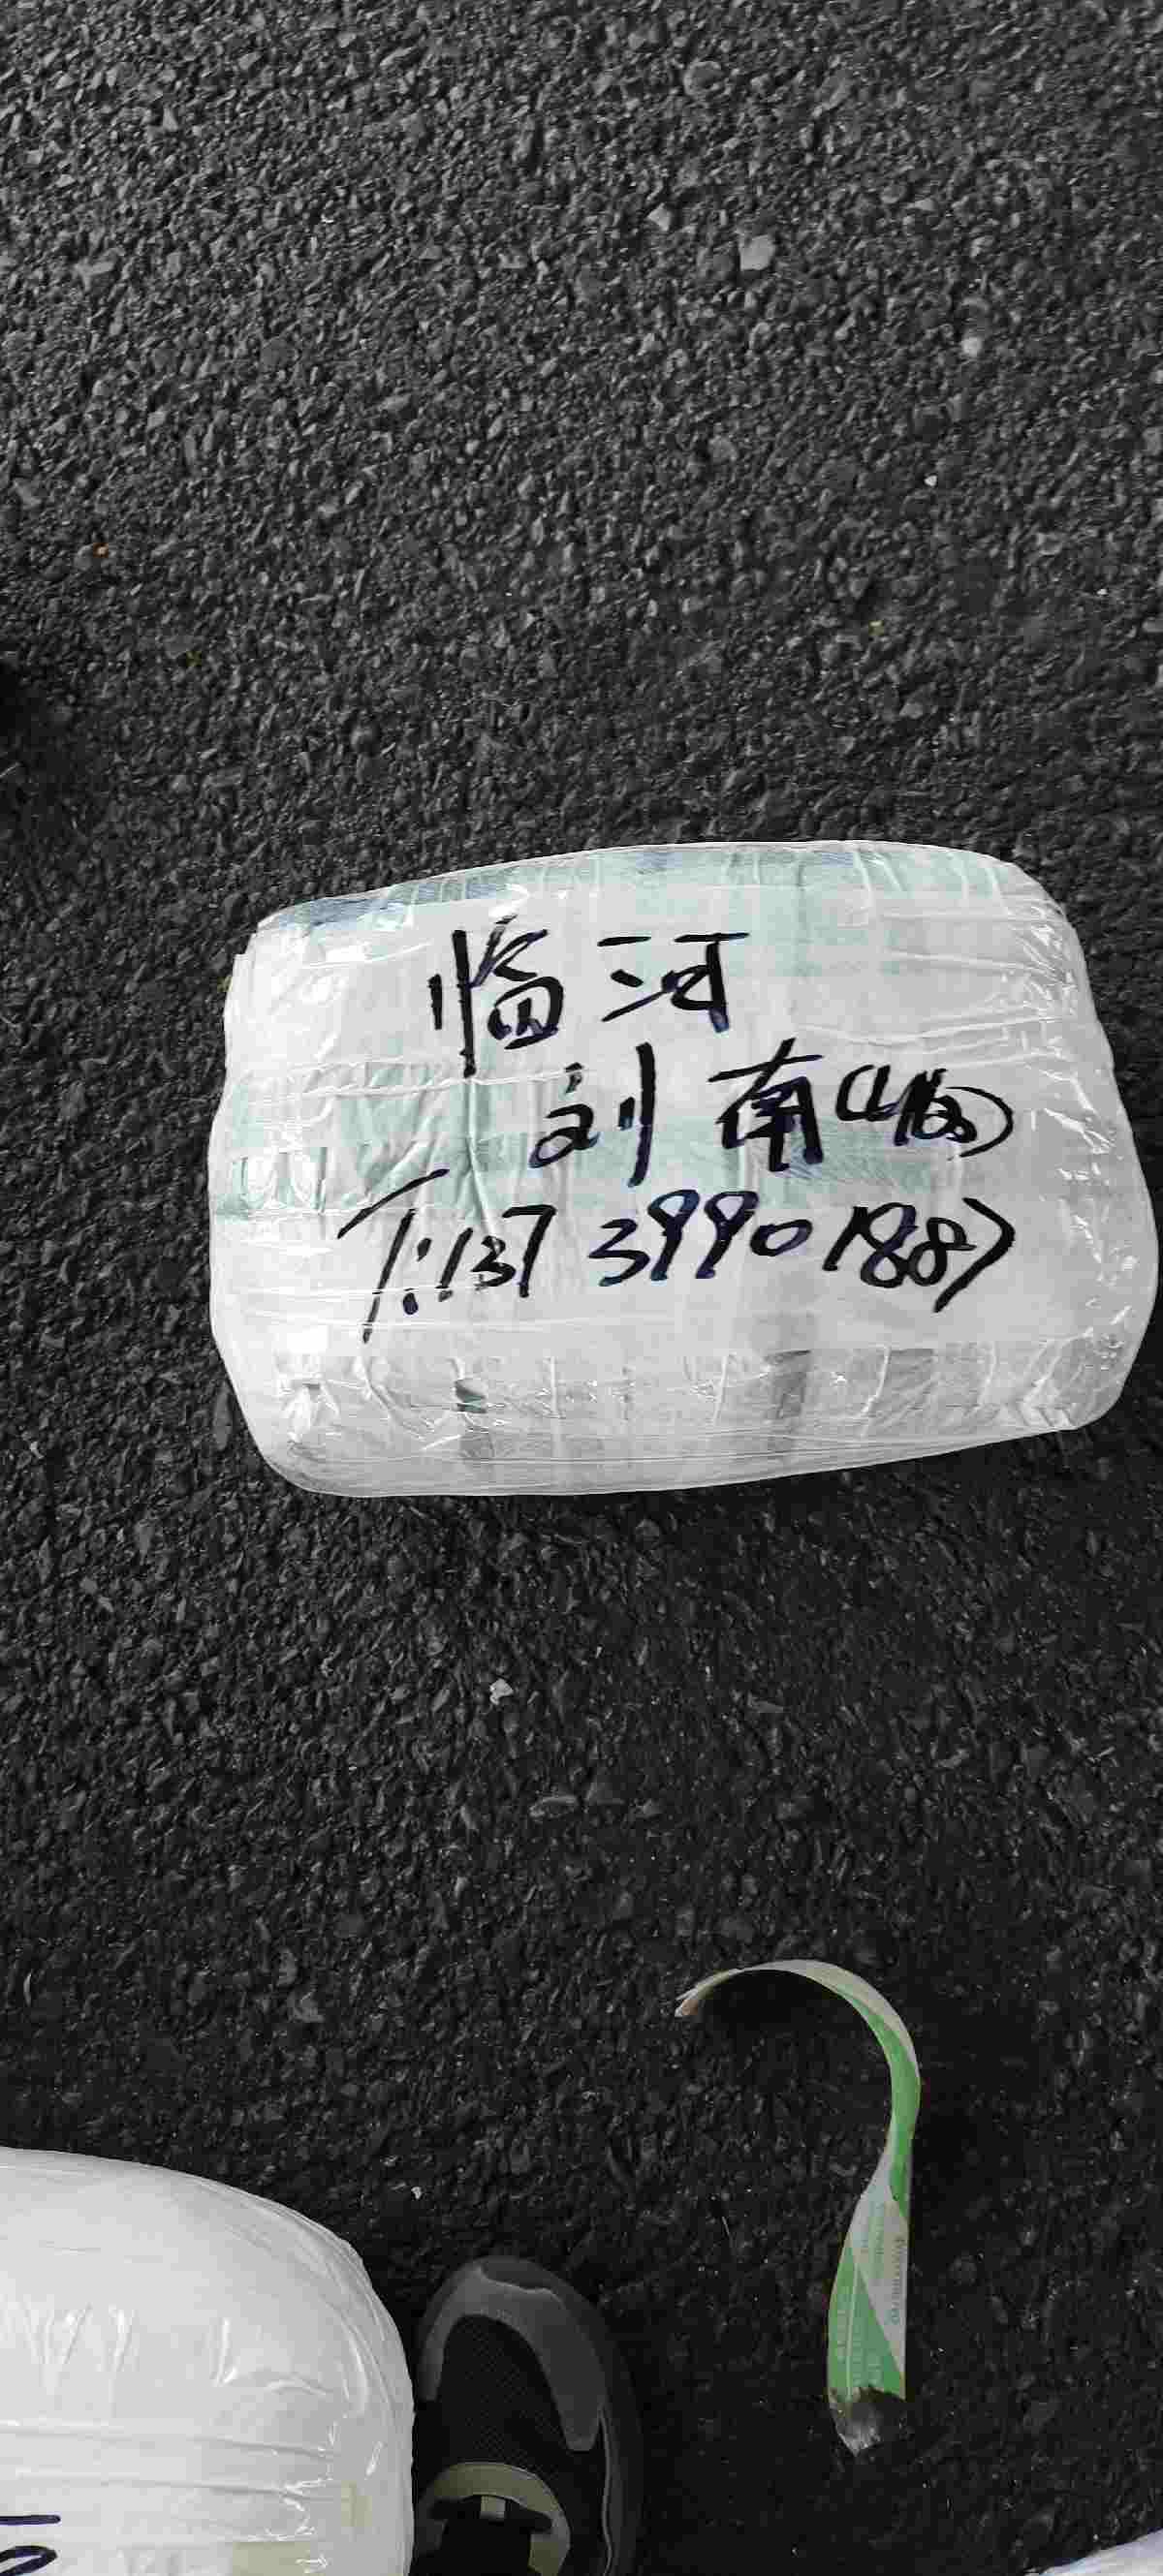 临河
刘南
T:137 3990 1887